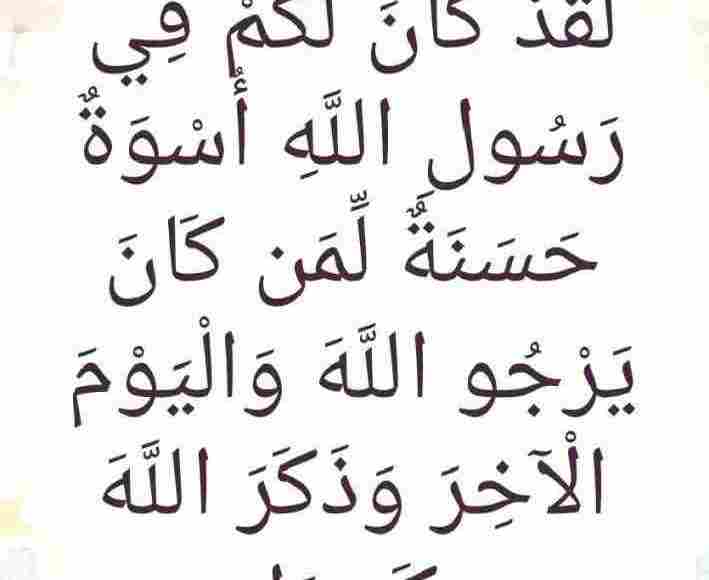 لَقَدْ كَانَ لَكُمْ فِي
رَسُولِ اللَّهِ أُسْوَةٌ
حَسَنَةٌ لِّمَن كَانَ
يَرْجُو اللَّهَ وَالْيَوْمَ
الْآخِرَ وَذَكَرَ اللَّهَ